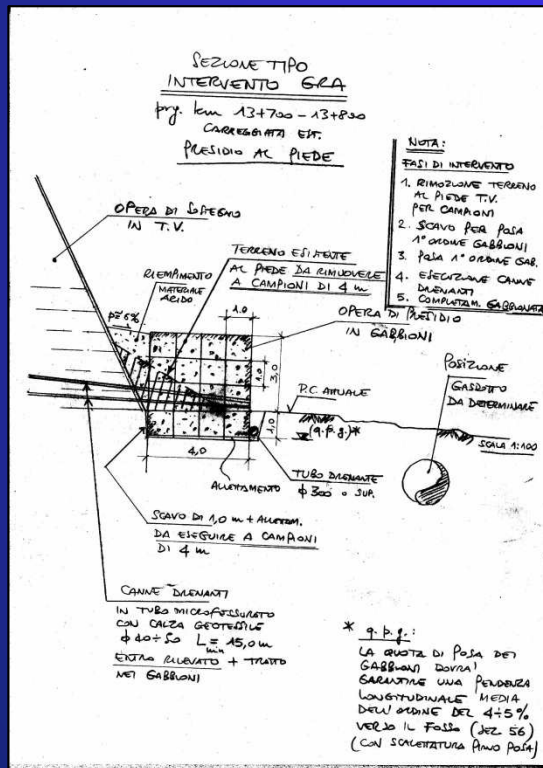 SEZIONE TIPO
INTERVENTO GRA
prg. km 13+700 - 13+800
CARREGGIATA EST.
PRESIDIO AL PIEDE
NOTA:
FASI DI INTERVENTO
1. RIMOZIONE TERRENO
AL PIEDE T.V.
PER CAMPIONI
2. SCAVO PER POSA
1° ORDINE GABBIONI
3. POSA 1° ORDINE GAB.
4. ESECUZIONE CANNE
DRENANTI
5. COMPLETAM. GABBIONATA
OPERA DI SOSTEGNO
IN T.V.
TERRENO ESISTENTE
AL PIEDE DA RIMUOVERE
A CAMPIONI DI 4 m
RIEMPIMENTO
MATERIALE
ARIDO
p≅6%
1.0
OPERA DI PRESIDIO
IN GABBIONI
1.0
3,0
1,0
4,0
P.C. ATTUALE
(q.p.g.)*
POSIZIONE
GASDOTTO
DA DETERMINARE
SCALA 1:100
ALLETTAMENTO
TUBO DRENANTE
ϕ 300 o SUP.
SCAVO DI 1,0 m + ALLETTAM.
DA ESEGUIRE A CAMPIONI
DI 4 m
CANNE DRENANTI
IN TUBO MICROFESSURATO
CON CALZA GEOTESSILE
ϕ 40÷50 L min = 15,0 m
ENTRO RILEVATO + TRATTO
NEI GABBIONI
* q.p.g.:
LA QUOTA DI POSA DEI
GABBIONI DOVRA'
GARANTIRE UNA PENDENZA
LONGITUDINALE MEDIA
DELL'ORDINE DEL 4÷5%
VERSO IL FOSSO (SEZ 56)
(CON SCALETTATURA PIANO POSA)